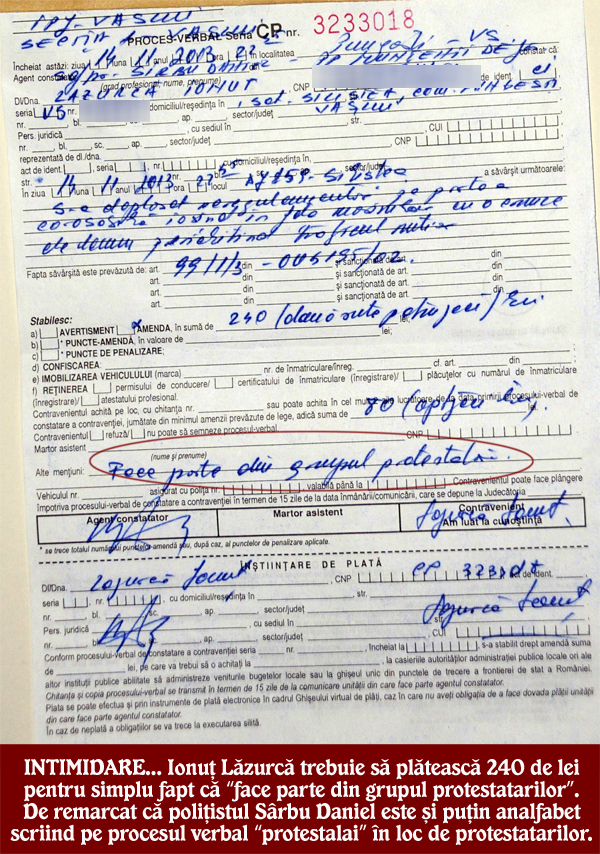 IPJ VASLUI
PROCES-VERBAL Seria CP nr. 3233018
Încheiat astăzi: ziua 14 11 anul 2013 ora în localitatea Pungești - VS
Agent constatator SÎRBU DANIEL
(grad profesional, nume, prenume) constat că:
Dl/Dna. LAZURCA IONUT CNP de ident. CI
seria VS nr. domiciliu/reședința în sat. SILISTEA com. PUNGESTI
nr. bl. sc. ap. sector/județ VASLUI
Pers. juridică cu sediul în str.
nr. bl. sc. ap. sector/județ CUI
reprezentată de dl./dna. CNP
act de ident. seria nr. cu domiciliu/reședința în
str. nr. bl. sc. ap. sector/județ
În ziua 14 11 anul 2013 ora locul Silistea a săvârșit următoarele:
s-a deplasat pe partea
carosabilă
de lemn traficul rutier
Fapta săvârșită este prevăzută de: art. 99/1/3 din OUG 195/02 și sancționată de art. din
art. din și sancționată de art. din
art. din și sancționată de art. din
art. din și sancționată de art. din
Stabilesc:
a) AVERTISMENT x AMENDA, în sumă de 240 (două sute patruzeci) lei lei;
b) * PUNCTE-AMENDĂ, în valoare de lei;
c) * PUNCTE DE PENALIZARE;
d) CONFISCAREA
e) IMOBILIZAREA VEHICULULUI (marca) nr. de înmatriculare/înreg. cf. art. din
f) REȚINEREA permisului de conducere/ certificatului de înmatriculare (înregistrare)/ plăcuțelor cu numărul de înmatriculare
(înregistrare)/ atestatului profesional.
Contravenientul achită pe loc, cu chitanța nr. sau poate achita în cel mult zile lucrătoare de la data primirii procesului-verbal de
constatare a contravenției, jumătate din minimul amenzii prevăzute de lege, adică suma de 80 (optzeci lei)
Contravenientul refuză/ nu poate să semneze procesul-verbal.
Martor asistent CNP
(nume și prenume)
Alte mențiuni: Face parte din grupul protestalai.
Vehiculul nr. asigurat cu polița nr. valabilă până la Contravenientul poate face plângere
împotriva procesului-verbal de constatare a contravenției în termen de 15 zile de la data înmânării/comunicării, care se depune la Judecătoria
Agent constatator Martor asistent Contravenient
Am luat la cunoștință
* se trece totalul numărului punctelor-amendă sau, după caz, al punctelor de penalizare aplicate.
ÎNȘTIINȚARE DE PLATĂ
Dl/Dna. Lazurcă Ionut CNP CP 3233018 act de ident.
seria nr. cu domiciliu/reședința în str.
nr. bl. sc. ap. sector/județ
Pers. juridică cu sediul în str.
nr. bl. sc. ap. sector/județ CUI
Conform procesului-verbal de constatare a contravenției seria nr. încheiat la s-a stabilit drept amendă suma
de lei, pe care va trebui să o achitați la la casieriile autorităților administrației publice locale ori ale
altor instituții publice abilitate să administreze veniturile bugetelor locale sau la ghișeul unic din punctele de trecere a frontierei de stat a României.
Chitanța și copia procesului-verbal se transmit în termen de 15 zile de la comunicare unității din care face parte agentul constatator.
Plata se poate efectua și prin instrumente de plată electronice în cadrul Ghișeului virtual de plăți, caz în care nu aveți obligația de a face dovada plății unității
din care face parte agentul constatator.
În caz de neplată a obligațiilor se va trece la executarea silită.
INTIMIDARE... Ionuț Lăzurcă trebuie să plătească 240 de lei
pentru simplu fapt că "face parte din grupul protestatarilor".
De remarcat că polițistul Sârbu Daniel este și puțin analfabet
scriind pe procesul verbal "protestalai" în loc de protestatarilor.